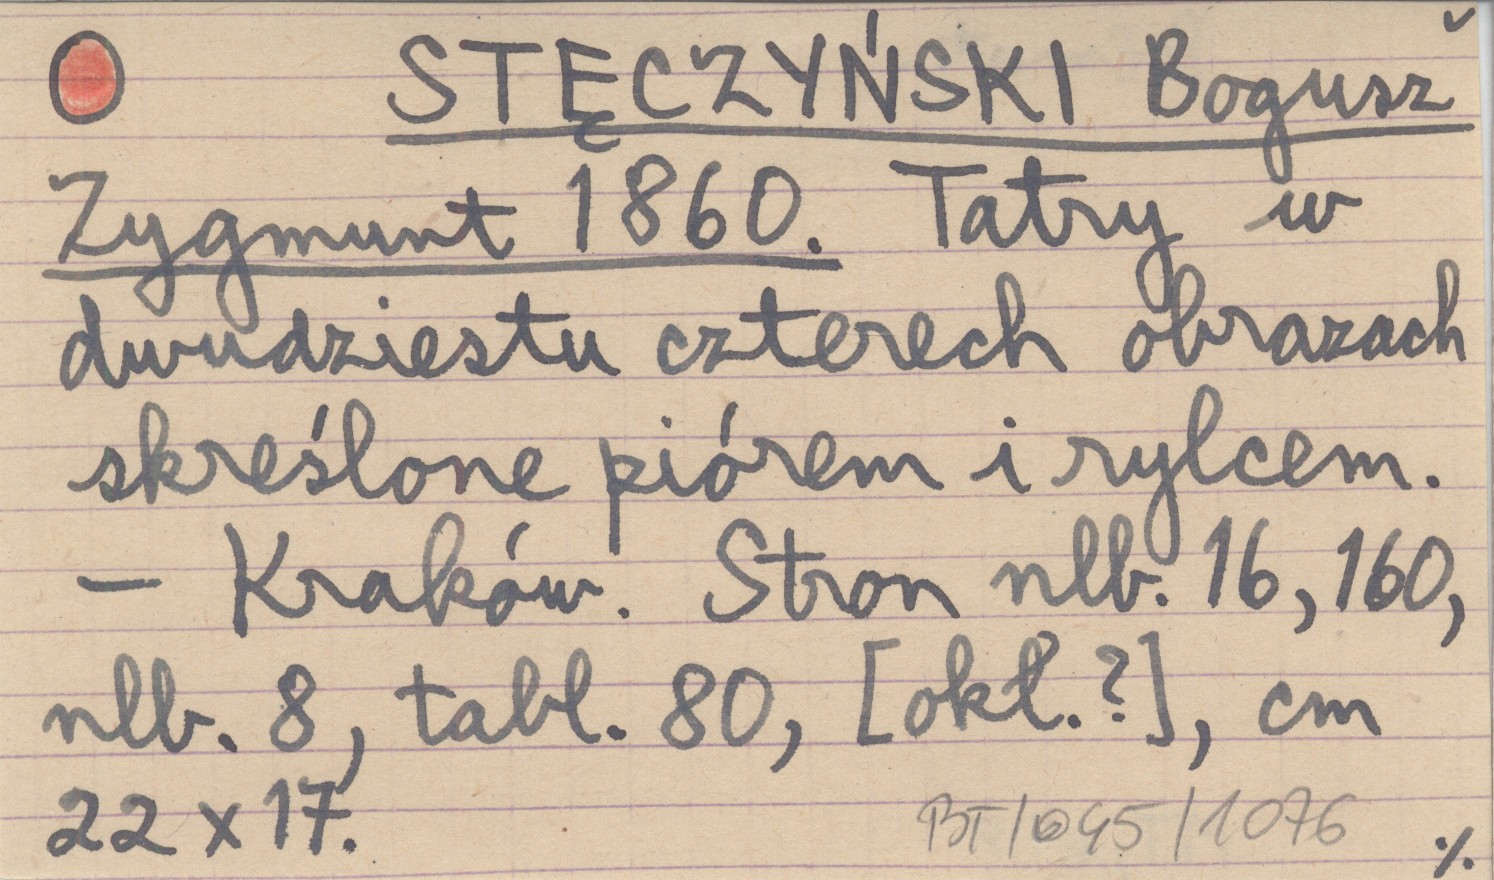 STĘCZYŃSKI Bogusz
Zygmunt 1860. Tatry w
dwudziestu czterech obrazach
skreślone piórem i rylcem.
— Kraków. Stron nlb. 16, 160,
nlb. 8, tabl. 80, [okł.?], cm
22 x 17.
./.